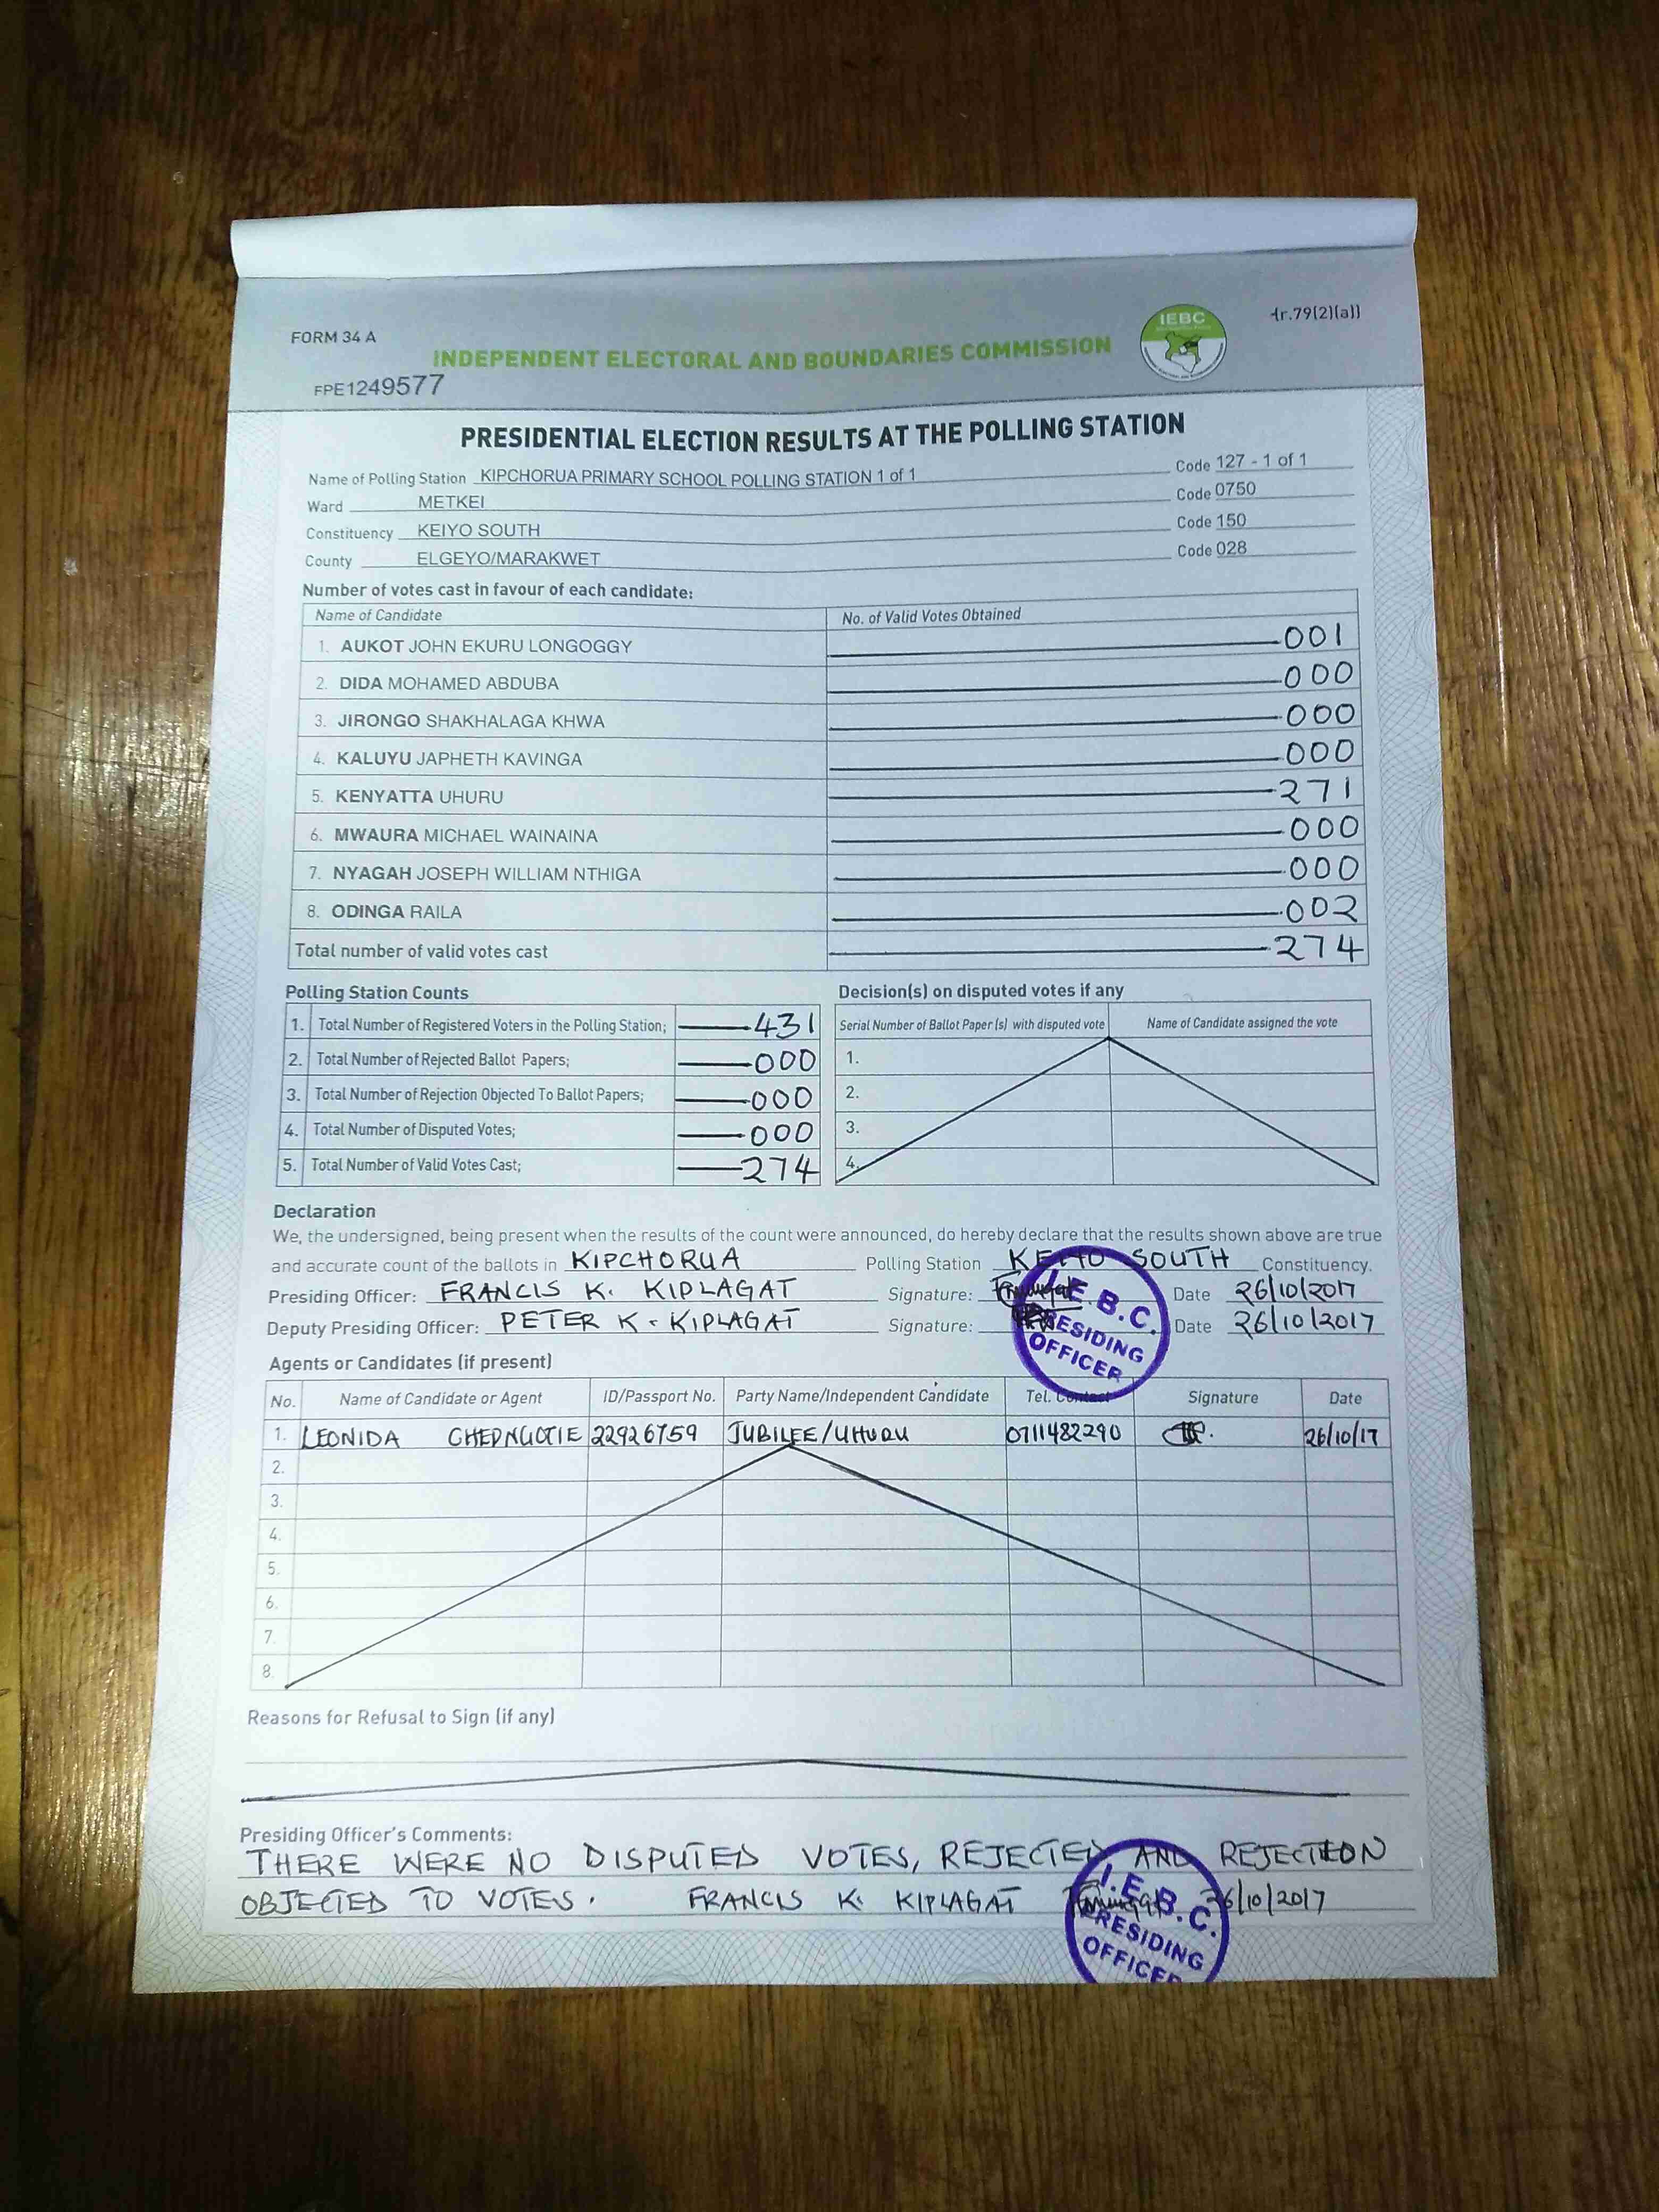 FORM 34 A
(r.79(2)(a))
IEBC
INDEPENDENT ELECTORAL AND BOUNDARIES COMMISSION
FPE1249577
PRESIDENTIAL ELECTION RESULTS AT THE POLLING STATION
Name of Polling Station KIPCHORUA PRIMARY SCHOOL POLLING STATION 1 of 1 Code 127 - 1 of 1
Ward METKEI Code 0750
Constituency KEIYO SOUTH Code 150
County ELGEYO/MARAKWET Code 028
Number of votes cast in favour of each candidate:
Name of Candidate No. of Valid Votes Obtained
1. AUKOT JOHN EKURU LONGOGGY 001
2. DIDA MOHAMED ABDUBA 000
3. JIRONGO SHAKHALAGA KHWA 000
4. KALUYU JAPHETH KAVINGA 000
5. KENYATTA UHURU 271
6. MWAURA MICHAEL WAINAINA 000
7. NYAGAH JOSEPH WILLIAM NTHIGA 000
8. ODINGA RAILA 002
Total number of valid votes cast 274
Polling Station Counts
1. Total Number of Registered Voters in the Polling Station; 431
2. Total Number of Rejected Ballot Papers; 000
3. Total Number of Rejection Objected To Ballot Papers; 000
4. Total Number of Disputed Votes; 000
5. Total Number of Valid Votes Cast; 274
Decision(s) on disputed votes if any
Serial Number of Ballot Paper (s) with disputed vote Name of Candidate assigned the vote
1.
2.
3.
4.
Declaration
We, the undersigned, being present when the results of the count were announced, do hereby declare that the results shown above are true
and accurate count of the ballots in KIPCHORUA Polling Station KEIYO SOUTH Constituency.
Presiding Officer: FRANCIS K. KIPLAGAT Signature: Date 26/10/2017
Deputy Presiding Officer: PETER K. KIPLAGAT Signature: Date 26/10/2017
I.E.B.C.
PRESIDING
OFFICER
Agents or Candidates (if present)
No. Name of Candidate or Agent ID/Passport No. Party Name/Independent Candidate Tel. Contact Signature Date
1. LEONIDA 22926759 JUBILEE/UHURU 0711482290 26/10/17
2.
3.
4.
5.
6.
7.
8.
Reasons for Refusal to Sign (if any)
Presiding Officer's Comments:
THERE WERE NO DISPUTED VOTES, REJECTED AND REJECTION
OBJECTED TO VOTES. FRANCIS K. KIPLAGAT 26/10/2017
I.E.B.C.
PRESIDING
OFFICER